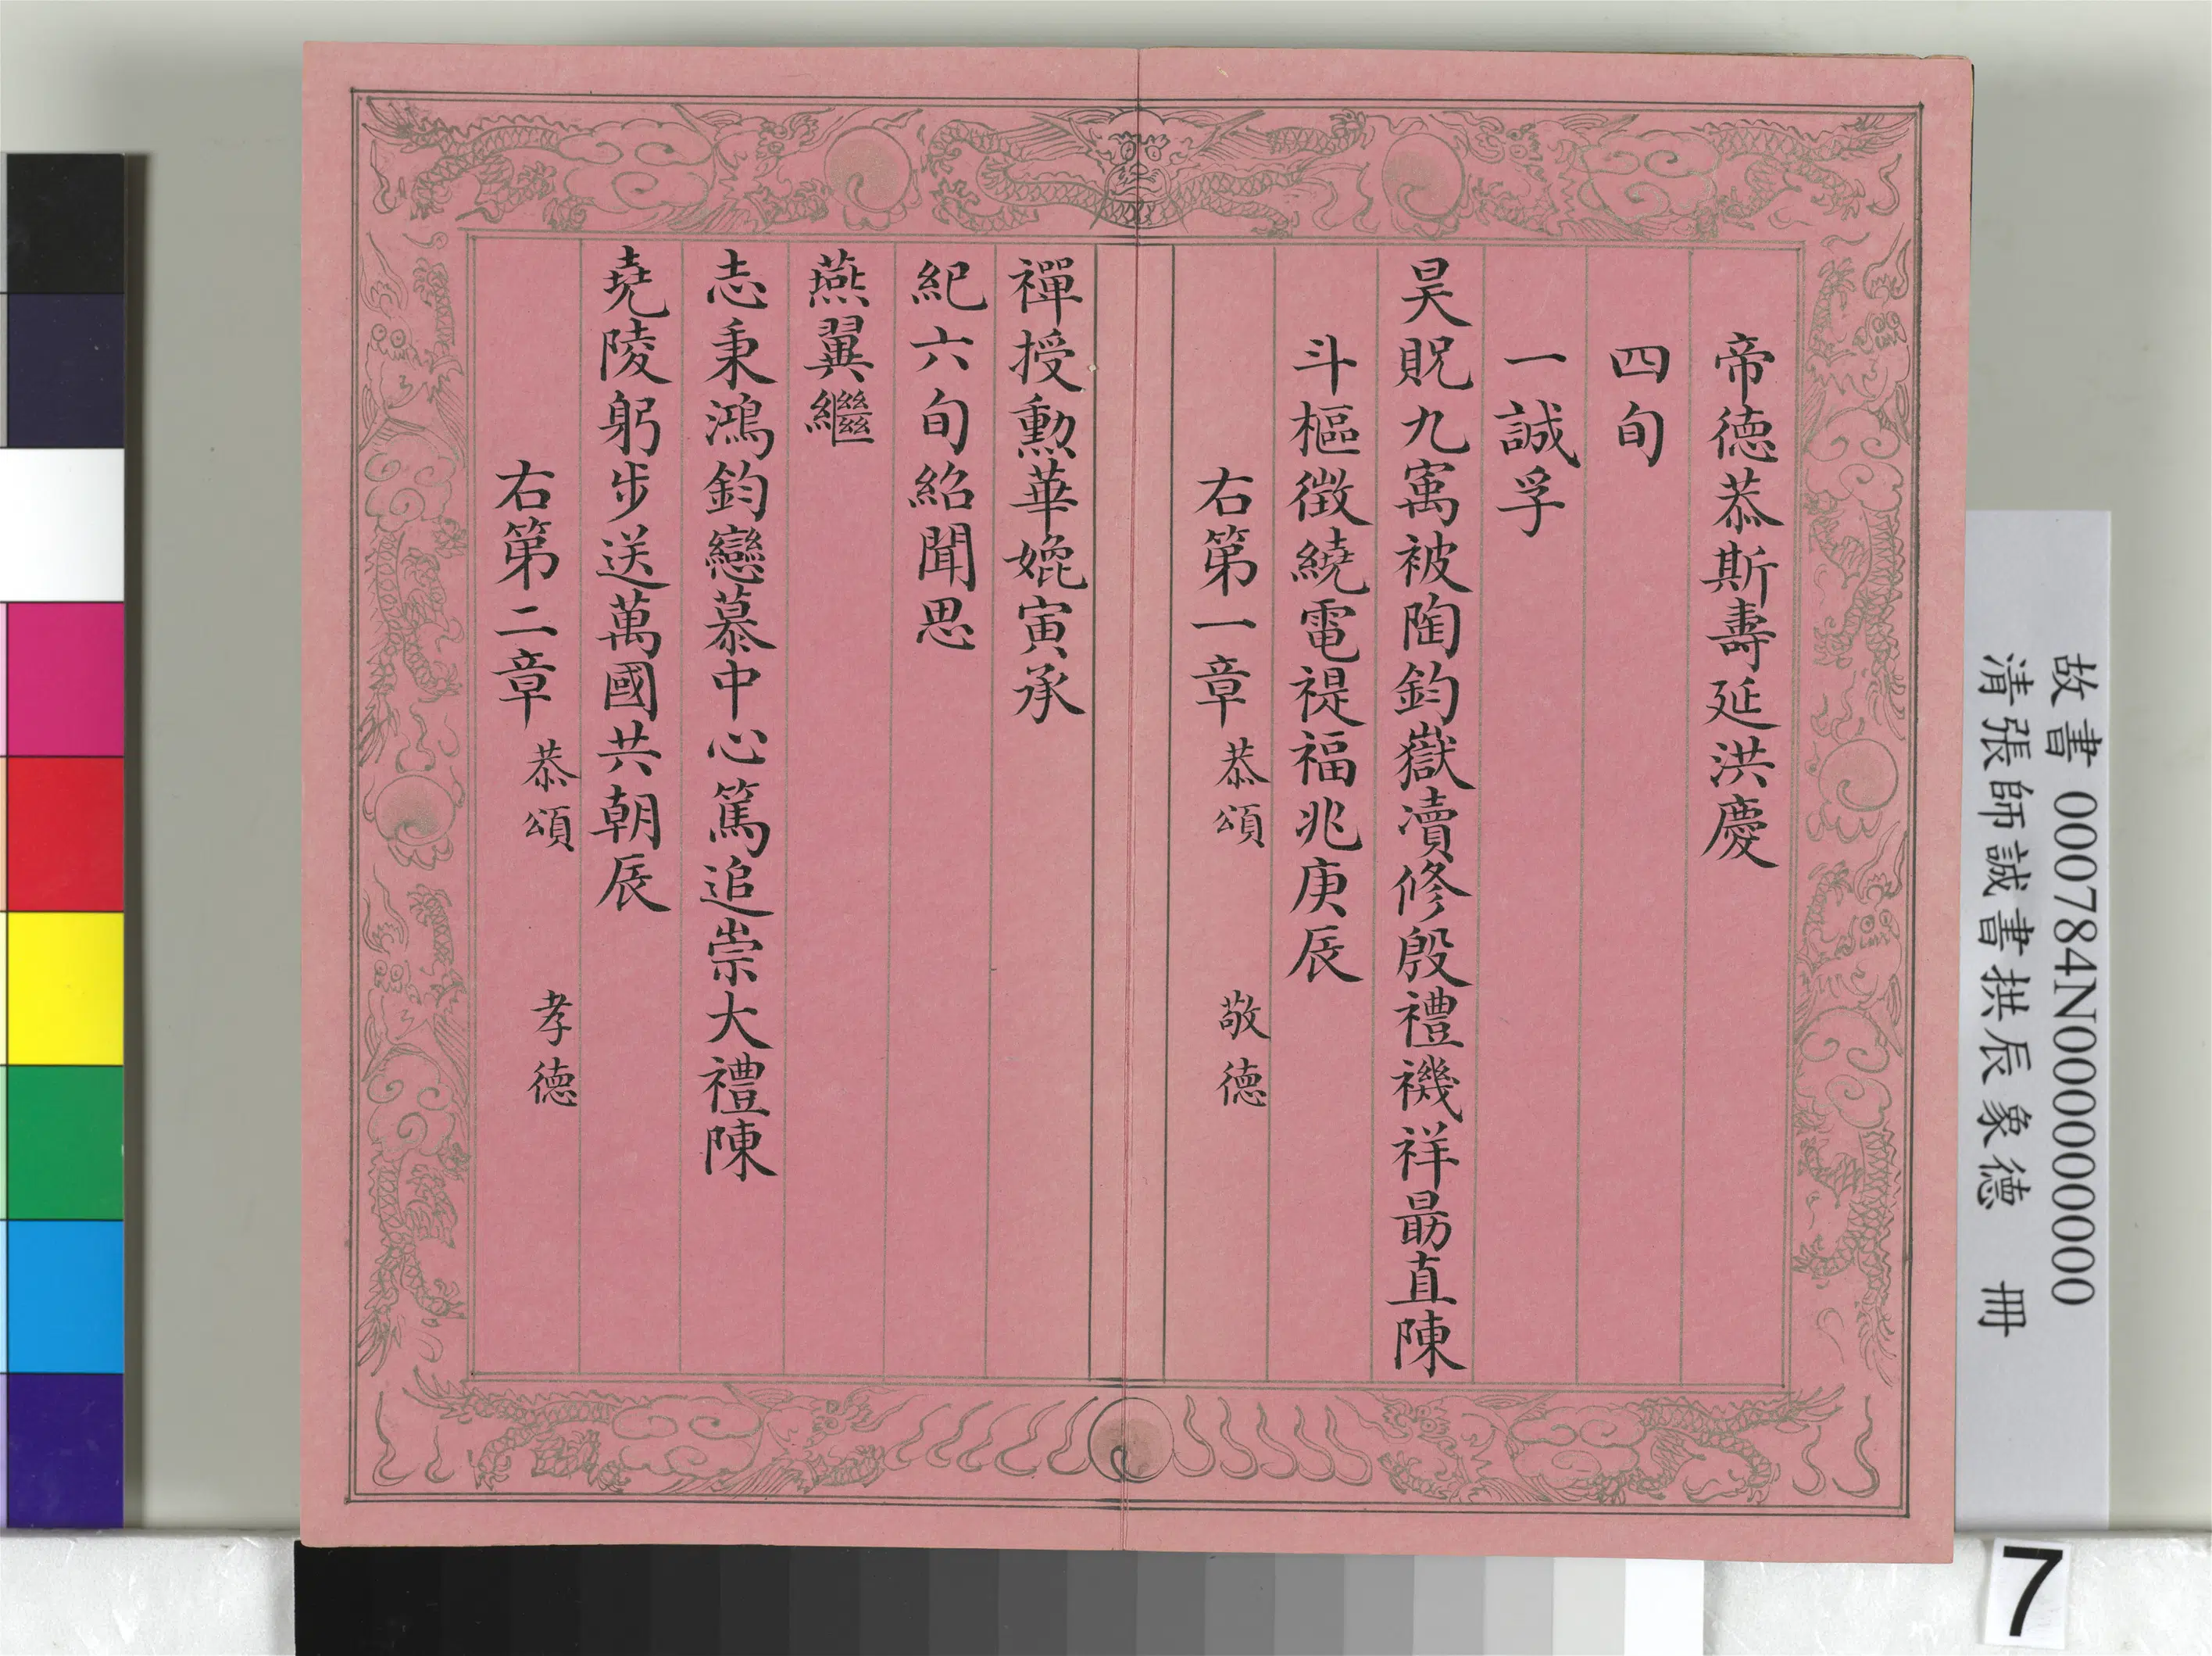 帝德恭斯壽延洪慶
四旬
一誠孚
昊貺九寓被陶鈞嶽瀆修殷禮禨祥勗直陳
斗樞徵繞電禔福兆庚辰
右第一章 恭頌 敬德
禪授勲華媲寅承
紀六旬紹聞思
燕翼繼
志秉鴻鈞戀慕中心篤追崇大禮陳
堯陵躬步送萬國共朝辰
右第二章 恭頌 孝德
故書 000784N000000000
清張師誠書拱辰象德 冊
7